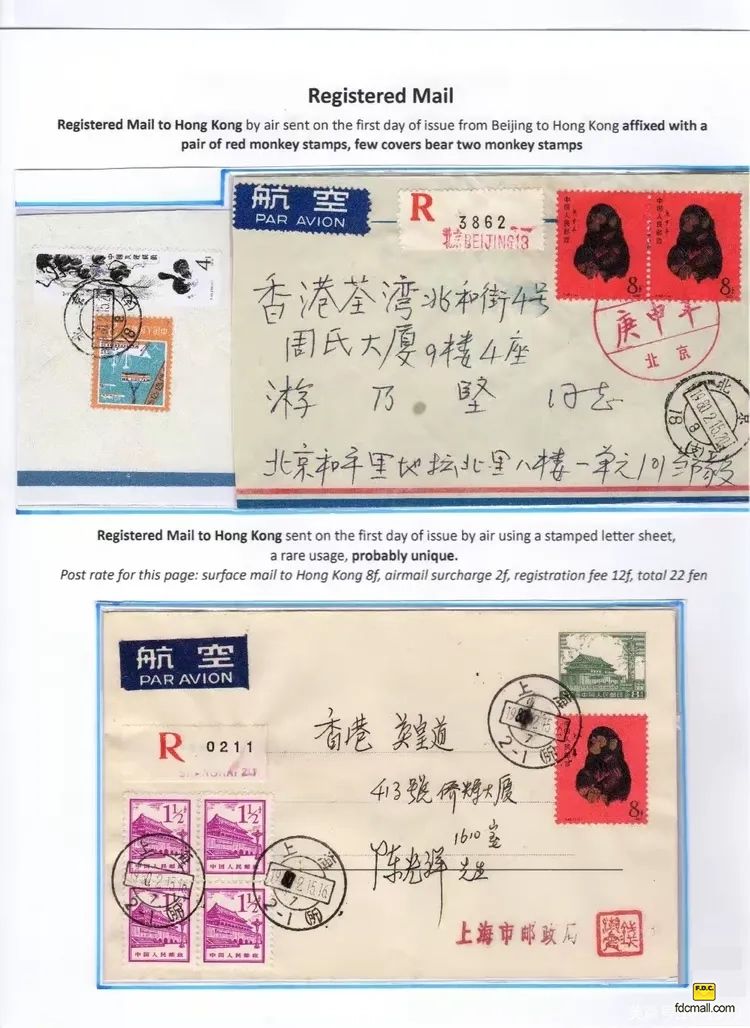 Registered Mail
Registered Mail to Hong Kong by air sent on the first day of issue from Beijing to Hong Kong affixed with a
pair of red monkey stamps, few covers bear two monkey stamps
航空
PAR AVION
R
3862
北京BEIJING13
中国人民邮政
8
中国人民邮政
8
4
香港荃湾兆和街4号
周氏大厦9楼4座
游乃堅 同志
庚申年
北京
北京
1980.2.15.20
18
北京和平里地拉北里八楼一单元101邹毅
Registered Mail to Hong Kong sent on the first day of issue by air using a stamped letter sheet,
a rare usage, probably unique.
Post rate for this page: surface mail to Hong Kong 8f, airmail surcharge 2f, registration fee 12f, total 22 fen
航空
PAR AVION
R
0211
SHANGHAI
中国人民邮政
8
上海
2-1
香港 英皇道
413號 侨輝大廈
1610室
陈光輝 先生
8
1½
1½
中国人民邮政
中国人民邮政
上海
2-1
上海
1980.2.15.16
2-1
1½
1½
中国人民邮政
中国人民邮政
上海市邮政局
F.D.C.
fdcmall.com